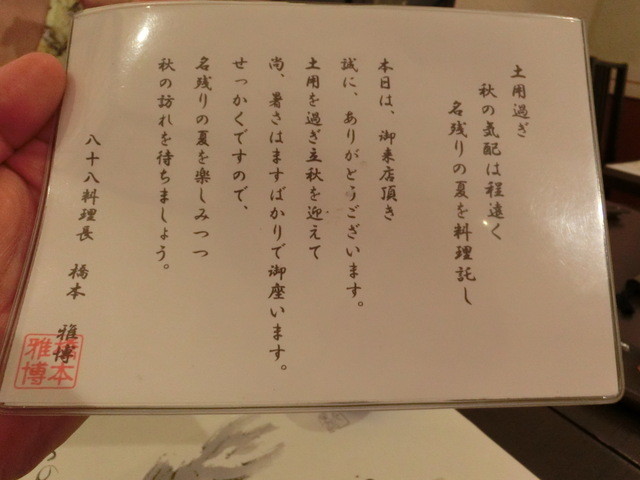 土用過ぎ
秋の気配は程遠く
名残りの夏を料理託し
本日は、御来店頂き
誠に、ありがとうございます。
土用を過ぎ立秋を迎えて
尚、暑さはますばかりで御座います。
せっかくですので、
名残りの夏を楽しみつつ
秋の訪れを待ちましょう。
八十八料理長 橋本 雅博
橋本
雅博